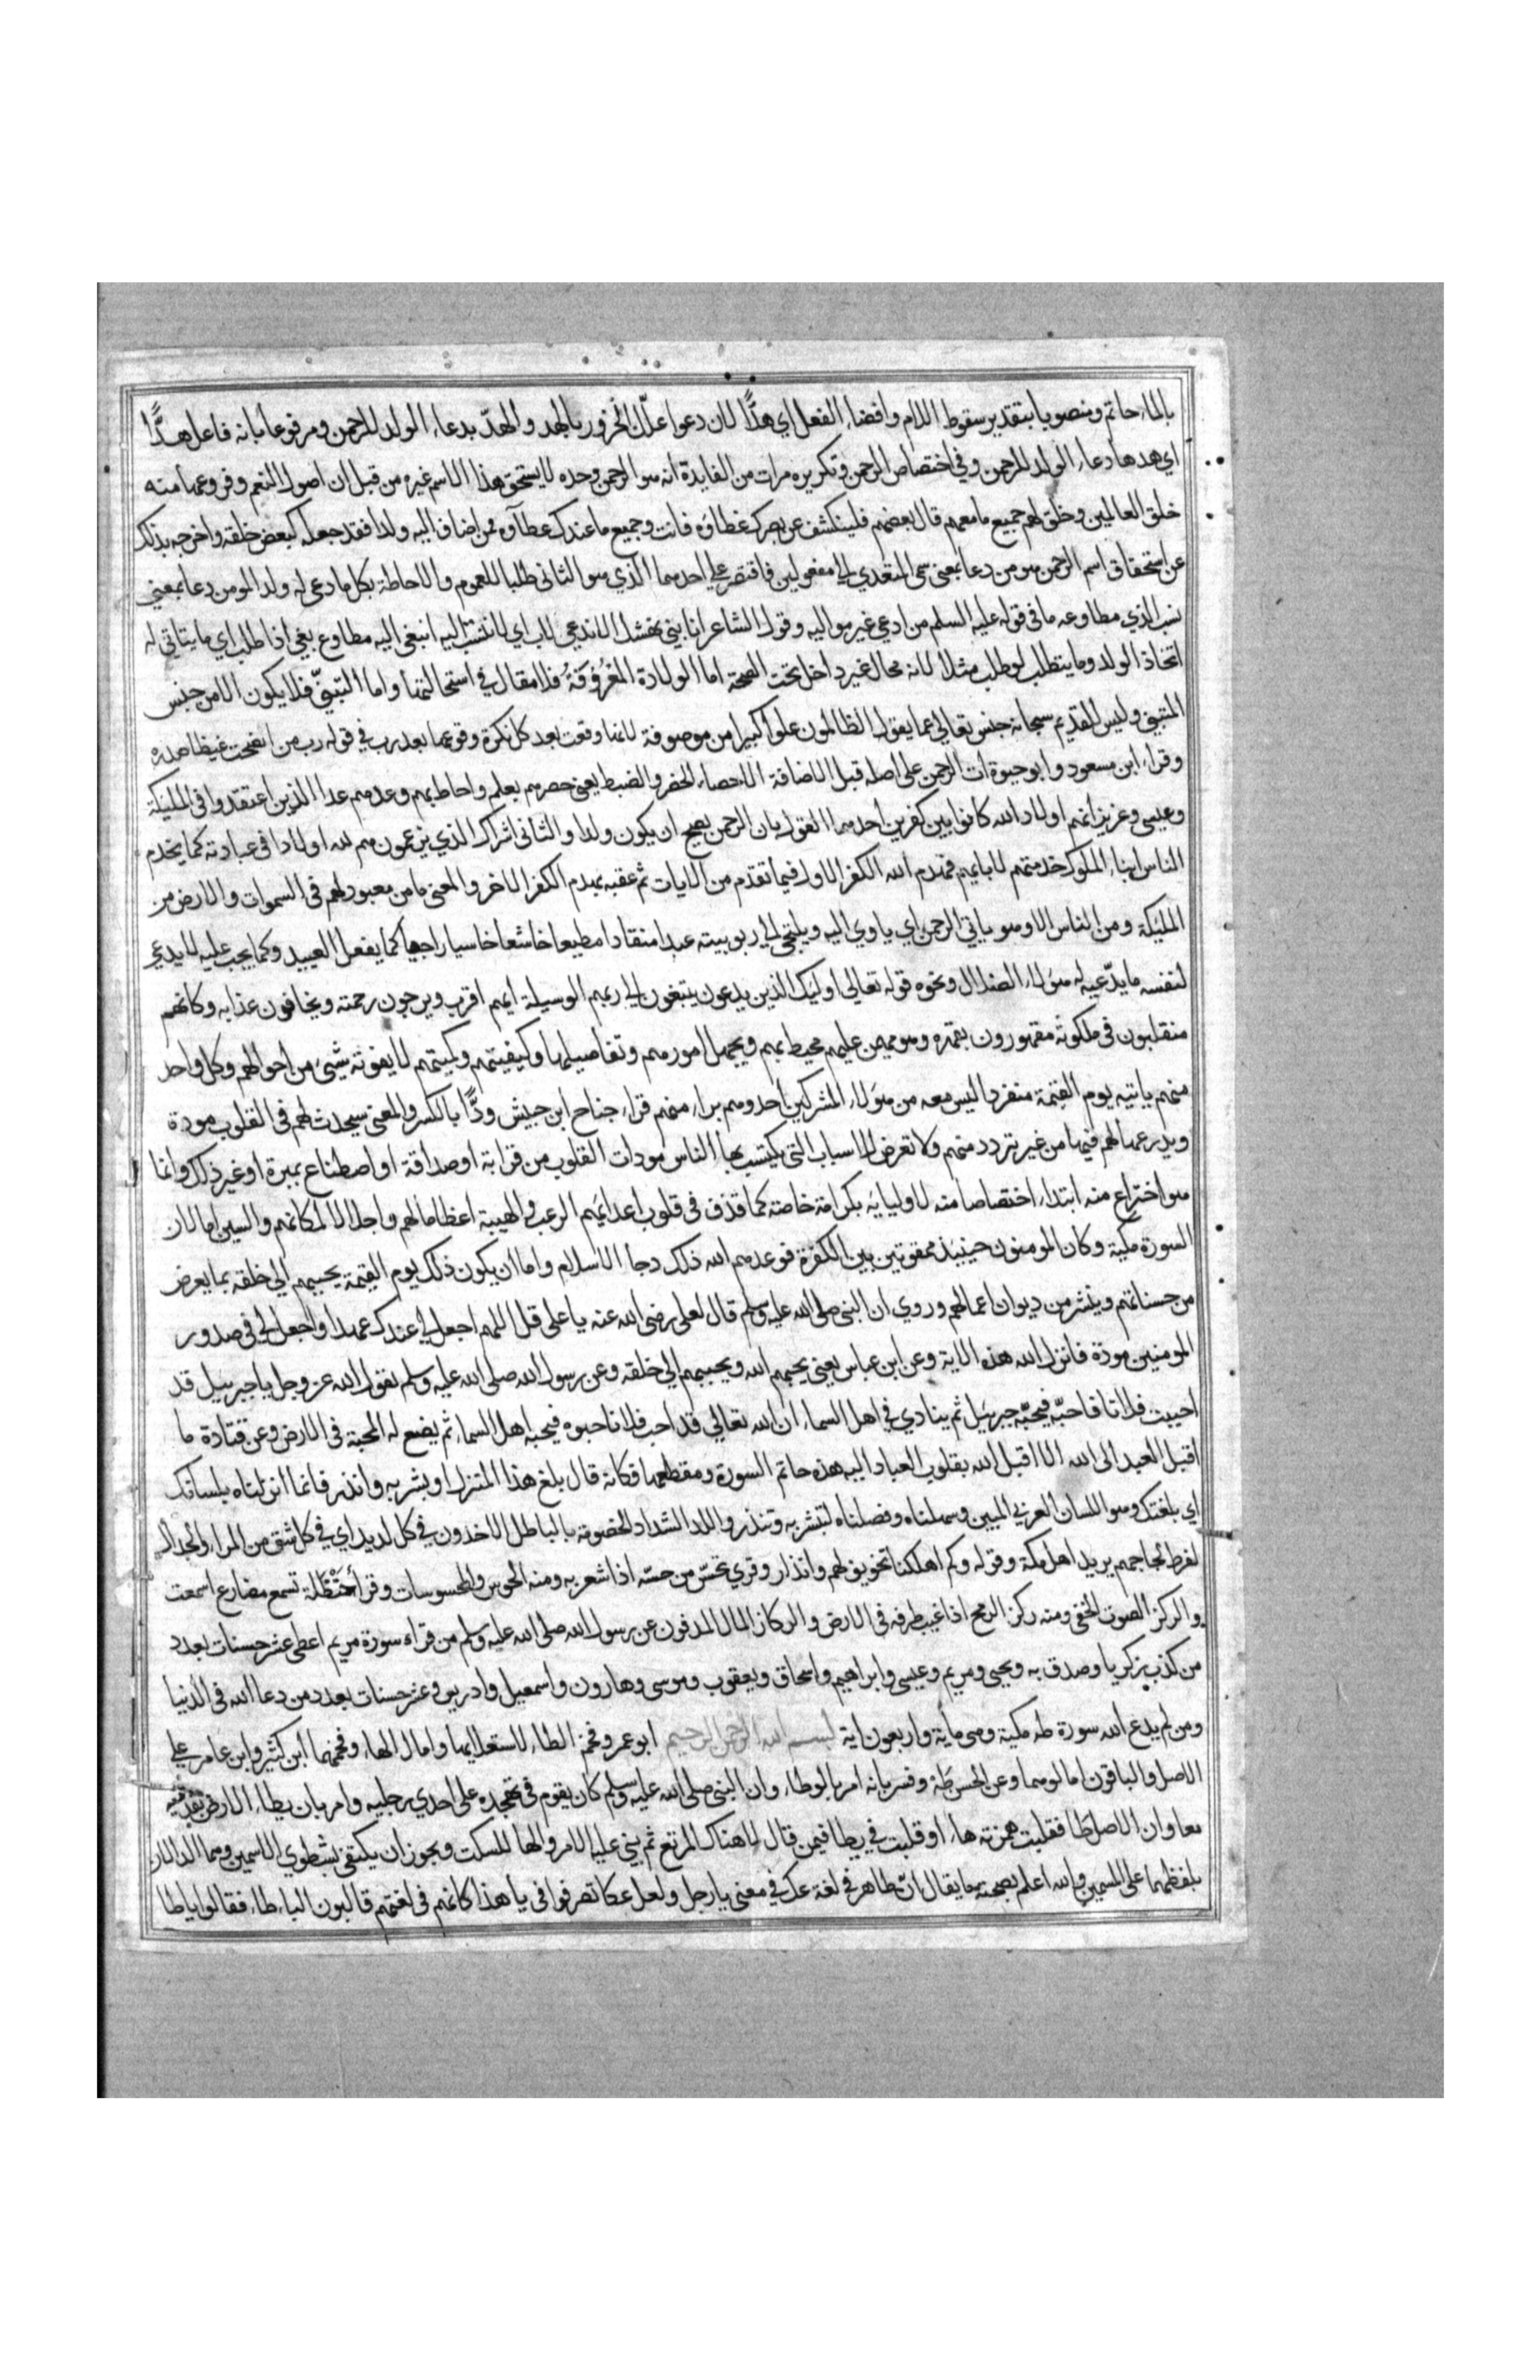 بالماء حاتم ومنصوبا بتقدير سقوط اللام وافضاء الفعل اي هدًّا لان دعوا علل الخرور بالهد والهدّ بدعاء الولد للرحمن ومرفوعا بانه فاعل هدًّا
اي هدها دعاء الولد للرحمن وفي اختصاص الرحمن وتكريره مرات من الفايدة انه هو الرحمن وحده لا يستحق هذا الاسم غيره من قبل ان اصول النعم وفروعها منه
خلق العالمين وخلق لهم جميع ما معهم قال بعضهم فلينكشف عن بصرك غطاؤه فانت وجميع ما عندك عطاؤه فمن اضاف اليه ولدا فقد جعله كبعض خلقه واخرجه بذلك
عن استحقاق اسم الرحمن هو من دعا بمعنى سمى المتعدي الى مفعولين فاقتصر على احدهما الذي هو الثاني طلبا للعموم والاحاطة بكل ما دعي له ولدا او من دعا بمعنى
نسب الذي مطاوعه ما في قوله عليه السلم من ادعي غير مواليه وقول الشاعر انا بني نهشل لا ندعي لاب اي لا ننتسب اليه انبغى اليه مطاوع بغى اذا طلب اي ما يتاتي له
اتخاذ الولد وما ينطلب لو طلب مثلا لانه محال غير داخل تحت الصحة اما الولادة المعروفة فلا مقال في استحالتها واما التبنّي فلا يكون الا من جنس
المتبني وليس للقديم سبحانه جنس تعالي عما يقول الظالمون علوا كبيرا من موصوفة لانها وقعت بعد كل نكرة وقوعها بعد رب في قوله رب من انضجت غيظا صدره
وقراء ابن مسعود وابو حيوة ات الرحمن على اصله قبل الاضافة الاحصاء الحصر والضبط يعني حصرهم بعلمه واحاط بهم وعدهم عدا الذين اعتقدوا في المليكة
وعيسى وعزيز انهم اولاد الله كانوا بين كفرين احدهما القول بان الرحمن يصح ان يكون والدا والثاني اشراك الذي يزعمون هم لله اولادا في عبادته كما يخدم
الناس ابناء الملوك خدمتهم لابايهم فهدم الله الكفر الاول فيما تقدم من الايات ثم عقبه بهدم الكفر الاخر والمعنى ما من معبود لهم في السموات والارض من
المليكة ومن الناس الا وهو ياتي الرحمن اي ياوي اليه ويلتجي الى ربوبيته عبدا منقادا مطيعا خاشعا خاسيا راجيا كما يفعل العبيد وكما يجب عليه لا يدعي
لنفسه ما يدّعيه له هؤلاء الضلال ونحوه قوله تعالي اوليك الذين يدعون يبتغون الى ربهم الوسيلة ايهم اقرب ويرجون رحمته ويخافون عذابه وكانهم
منقلبون في ملكوته مقهورون بقهره وهو مهيمن عليهم محيط بهم وبجمل امورهم وتفاصيلها وكيفيتهم وكميتهم لا يفوته شيئ من احوالهم وكل واحد
منهم ياتيه يوم القيمة منفردا ليس معه من هؤلاء المشركين احد وهم براء منهم قراء جناح ابن حبيش ودًّا بالكسر والمعنى سيحدث لهم في القلوب مودة
ويزرعها لهم فيها من غير تردد منهم ولا تعرض للاسباب التي يكتسب بها الناس مودات القلوب من قرابة او صداقة او اصطناع بمبرة او غير ذلك وانما
هو اختراع منه ابتداء اختصاصا منه لاوليايه بكرامة خاصة كما قذف في قلوب اعدايهم الرعب والهيبة اعظاما لهم واجلالا لمكانهم والسين اما لان
السورة مكية وكان المومنون حينيذ ممقوتين بين الكفرة فوعدهم الله ذلك دجا الاسلام واما ان يكون ذلك يوم القيمة يحببهم الي خلقه بما يعرض
من حسناتهم وينشر من ديوان اعمالهم وروي ان النبي صلى الله عليه وسلم قال لعلي رضى الله عنه يا علي قل اللهم اجعل لي عندك عهدا واجعل لي في صدور
المومنين مودة فانزل الله هذه الاية وعن ابن عباس يعني يحبهم الله ويحببهم الي خلقه وعن رسول الله صلى الله عليه وسلم يقول الله عز وجل يا جبرييل قد
احببت فلانا فاحبّه فيحبّه جبرييل ثم ينادي في اهل السماء ان الله تعالي قد احب فلانا فاحبوه فيحبه اهل السماء ثم يضع له المحبة في الارض وعن قتادة ما
اقبل العبد الى الله الا اقبل الله بقلوب العباد اليه هذه خاتم السورة ومقطعها فكانه قال بلغ هذا المنزل او بشر به وانذر فانما انزلناه بلسانك
اي بلغتك وهو اللسان العربي المبين وسهلناه وفصلناه لتبشر به وتنذر واللد الشداد الخصومة بالباطل الاخذون في كل لديد اي في كل شق من المراء والجدال
لفرط لجاجهم يريد اهل مكة وقوله وكم اهلكنا تخويف لهم وانذار وقري تحسّ من حسّه اذا شعر به ومنه الحواس والمحسوسات وقرا حنظلة تسمع مضارع اسمعت
والركز الصوت الخفي ومنه ركز الرمح اذا غيب طرفه في الارض والركاز المال المدفون عن رسول الله صلى الله عليه وسلم من قراء سورة مريم اعطي عشر حسنات بعدد
من كذب بزكريا وصدق به ويحيى ومريم وعيسى وابراهيم واسحاق ويعقوب وموسى وهارون واسمعيل وادريس وعشر حسنات بعدد من دعا الله في الدنيا
ومن لم يدع الله سورة طه مكية وهي ماية واربعون اية بسم الله الرحمن الرحيم ابو عمرو فخم الطاء لاستعلايها وامال الهاء وفخمهما ابن كثير وابن عامر علي
الاصل والباقون امالوهما وعن الحسن طَهْ وفسر بانه امر بالوطاء وان النبي صلى الله عليه وسلم كان يقوم في تهجده على احدي رجليه وامر بان يطاء الارض بقدميه
معا وان الاصل طا فقلبت همزته هاء او قلبت في يطا فيمن قال لا هناك المرتع ثم بني عليه الامر والها للسكت ويجوز ان يكتفى بشطري الاسمين وهما الدالان
بلفظهما على المسمين والله اعلم بصحة ما يقال انّ طاها في لغة عك في معنى يا رجل ولعل عكا تصرفوا في يا هذا كانهم في لغتهم قالبون الياء طاء فقالوا يا طا